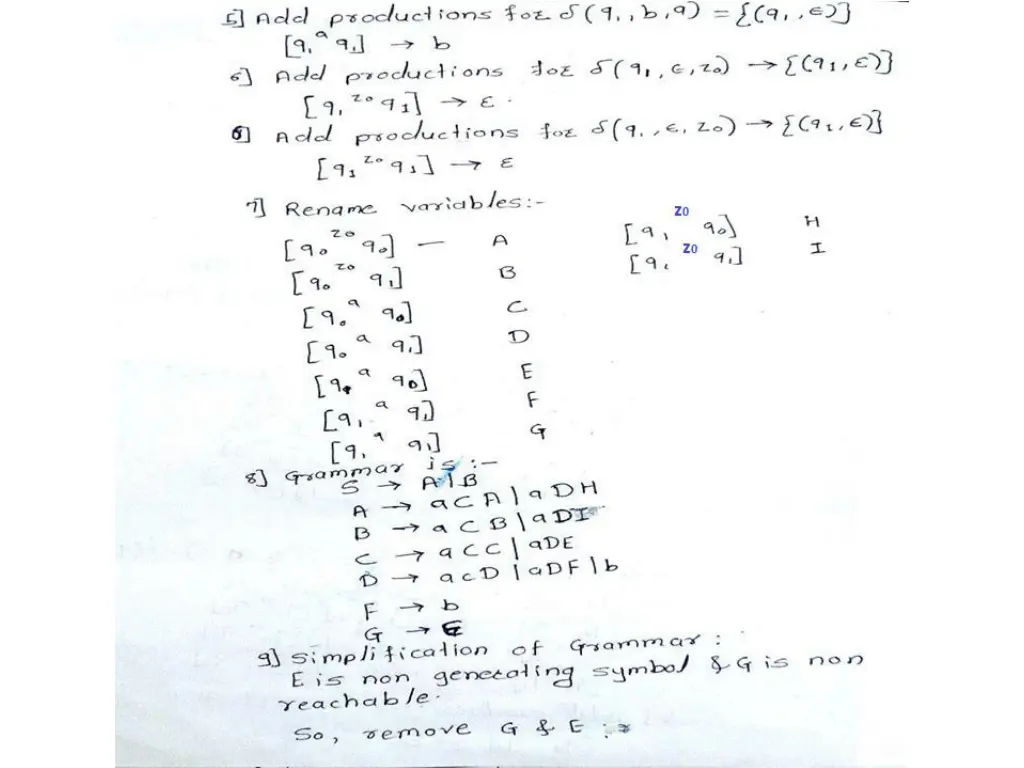 5] Add productions for δ(q1, b, a) = {(q1, ε)}
[q1 a q1] → b
6] Add productions for δ(q1, ε, z0) → {(q1, ε)}
[q1 z0 q1] → ε.
6] Add productions for δ(q1, ε, z0) → {(q1, ε)}
[q1 z0 q1] → ε
7] Rename variables:-
[q0 z0 q0] — A [q1 z0 q0] H
[q0 z0 q1] B [q1 z0 q1] I
[q0 a q0] C
[q0 a q1] D
[q1 a q0] E
[q1 a q1] F
[q1 a q1] G
8] Grammar is :-
S → A | B
A → aCA | aDH
B → aCB | aDI
C → aCC | aDE
D → acD | aDF | b
F → b
G → ε
9] Simplification of Grammar :
E is non generating symbol & G is non
reachable.
So, remove G & E :-